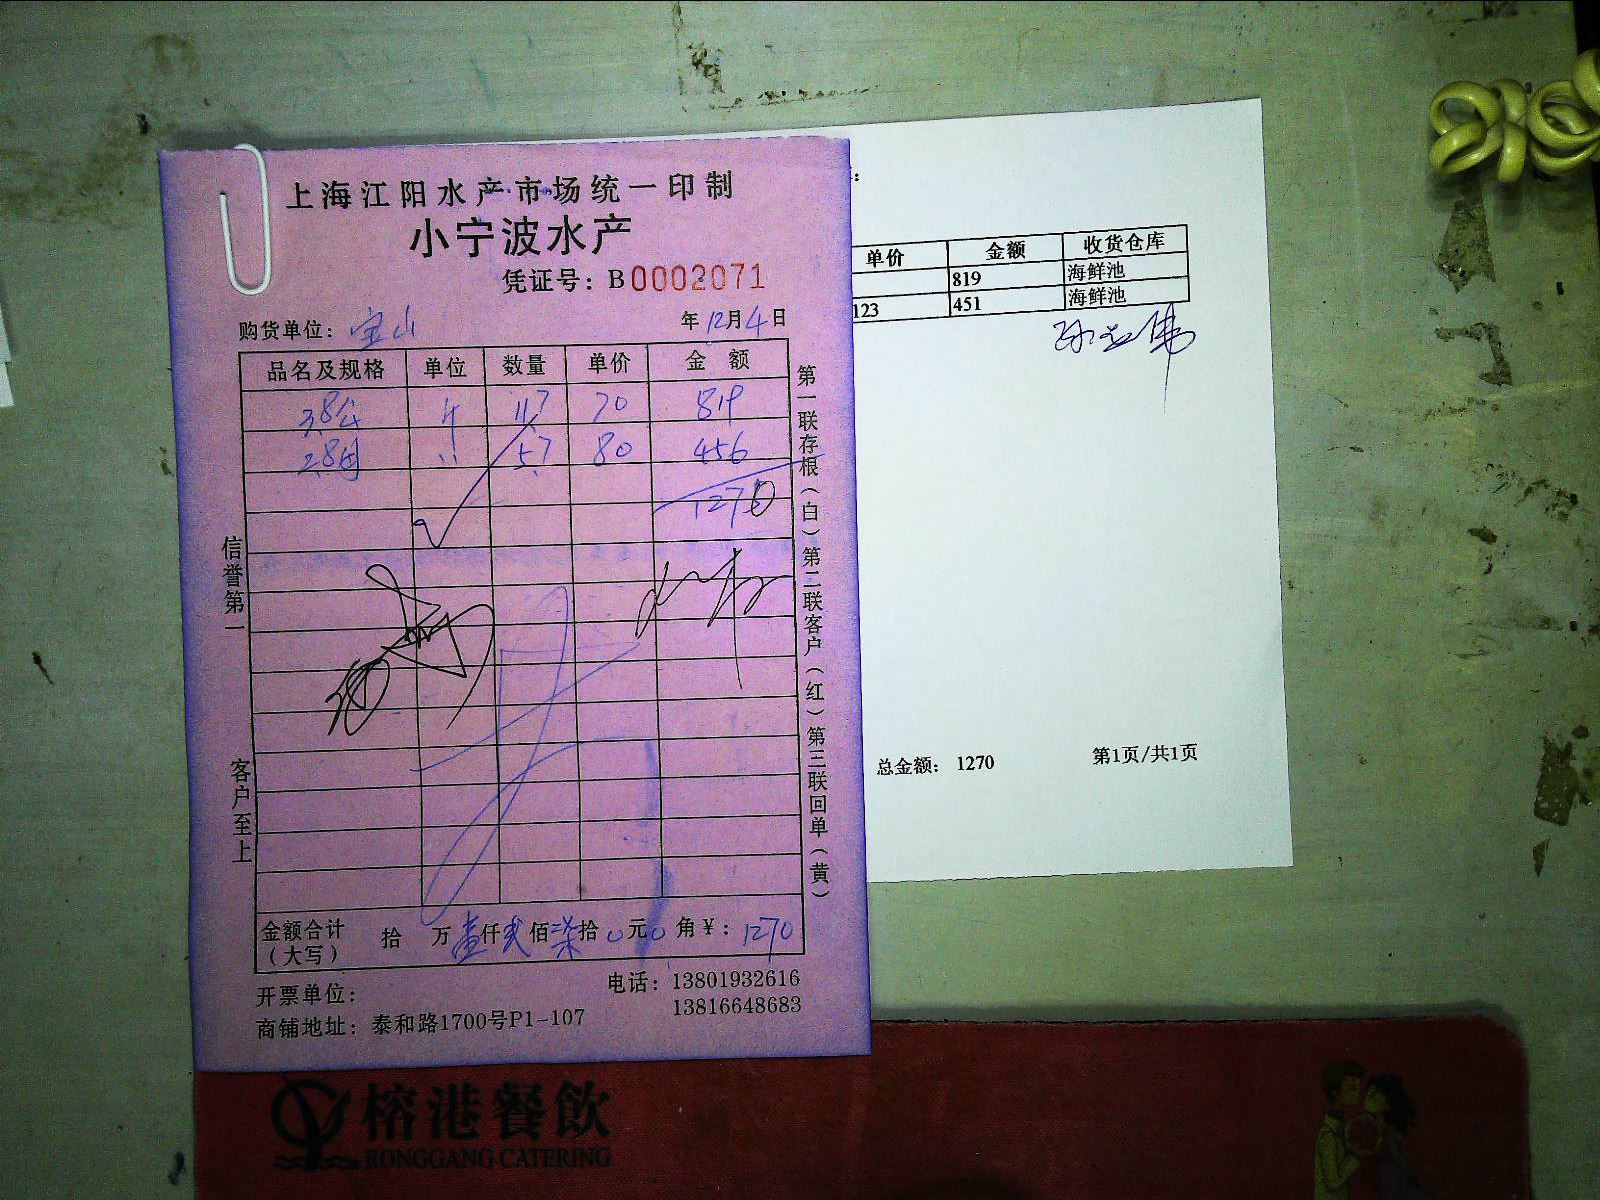 上海江阳水产市场统一印制
小宁波水产
凭证号：B0002071
购货单位：宝山 年12月4日
品名及规格 单位 数量 单价 金额
3.8公 斤 11.7 70 819
2.8母 〃 5.7 80 456
1270
金额合计（大写） 拾 万壹仟贰佰柒拾0元0角￥：1270
开票单位：
电话：13801932616
13816648683
商铺地址：泰和路1700号P1-107
信誉第一
客户至上
第一联存根（白）第二联客户（红）第三联回单（黄）
单价 金额 收货仓库
819 海鲜池
123 451 海鲜池
总金额： 1270 第1页/共1页
榕港餐飲
RONGGANG CATERING